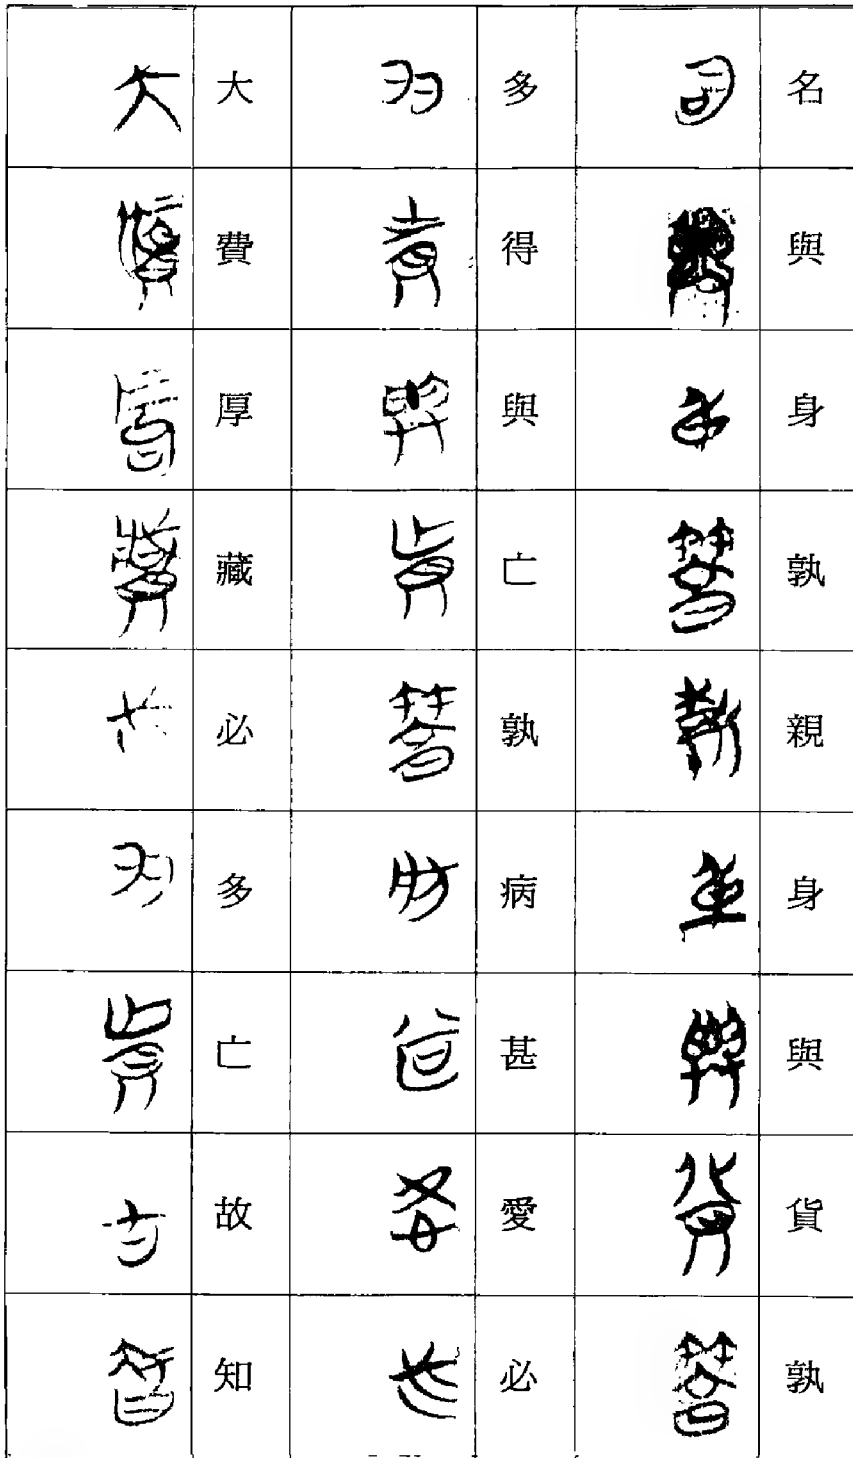 名與身孰親身與貨孰
多得與亡孰病甚愛必
大費厚藏必多亡故知